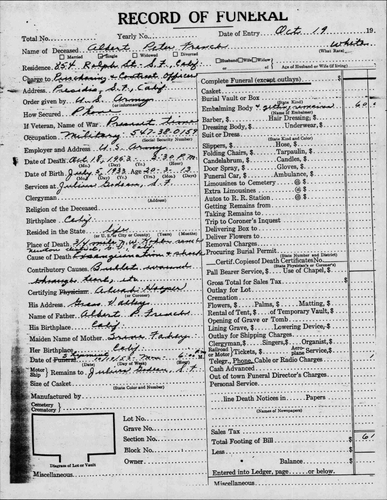 RECORD OF FUNERAL
Total No. Yearly No. Date of Entry Oct 19 19
Name of Deceased Albert Peter French White
Married Single Widowed Divorced Husband Wife Widow (What Race)
Residence 254 Ralph St. S.F., Calif Age of Husband or Wife (if living)
Charge to Purchasing & Contract Officer
Address Presidio, S.F., Calif
Order given by U.S. Army
How Secured Phone
If Veteran, name of War
Occupation Military 547-38-0159
(Social Security Number)
Employer and Address U.S. Army
Date of Death Oct 18, 1952 5:30 P.M.
Date of Birth July 5, 1932 Age 20-3-13
Services at Julius Godeau, S.F.
Clergyman (Address)
Religion of the Deceased
Birthplace Calif
Resided in the State life
(In U. S. City or County) (Years, Months, Days)
Place of Death
Cause of Death Exsanguination & shock
Contributory Causes Bullet wound
through heart, etc
Certifying Physician Alvah Hooper
(or Coroner)
His Address Grass Valley
Name of Father Albert P. French
His Birthplace Calif
Maiden Name of Mother Fahey
Her Birthplace Calif
Date of
Motor Ship Remains to Julius Godeau S.F.
Size of Casket
(State Color and Number)
Manufactured by
Cemetery
Crematory
Lot No.
Grave No.
Section No.
Block No.
Owner
Diagram of Lot or Vault
Miscellaneous
Complete Funeral (except outlays) $
Casket
Burial Vault or Box
(State Kind)
Embalming Body &
(Name of Embalmer)
Barber, $ Hair Dressing, $
Dressing Body, $ Underwear, $
Suit or Dress
Slippers, $ Hose, $
Folding Chairs, $ Tarpaulin, $
Candelabrum, $ Candles, $
Door Spray, $ Gloves, $
Funeral Car, $ Ambulance, $
Limousines to Cemetery @ $
Extra Limousines @ $
Autos to R. R. Station @ $
Getting Remains from
Taking Remains to
Trip to Coroner's Inquest
Delivering Box to
Deliver Flowers to
Removal Charges
Procuring Burial Permit
(State Number and District)
Certif. Copies of Death Certificates No.
(State Physician or Coroner)
Pall Bearer Service, $ Use of Chapel, $
Gross Total for Sales Tax $
Outlay for Lot
Cremation
Flowers, $ Palms, $ Matting, $
Rental of Tent, $ of Temporary Vault, $
Opening of Grave or Tomb
Lining Grave, $ Lowering Device, $
Outlay for Shipping Charges
Clergyman, $ Singers, $ Organist, $
Railroad or Motor Tickets, $ Aeroplane Service, $
Telegr., Phone, Cable or Radio Charges
Cash Advanced
Out of town Funeral Director's Charges
Personal Service
line Death Notices in Papers
(Names of Newspapers)
Sales Tax $
Total Footing of Bill $
Less
Balance $
Entered into Ledger, page or below
Miscellaneous